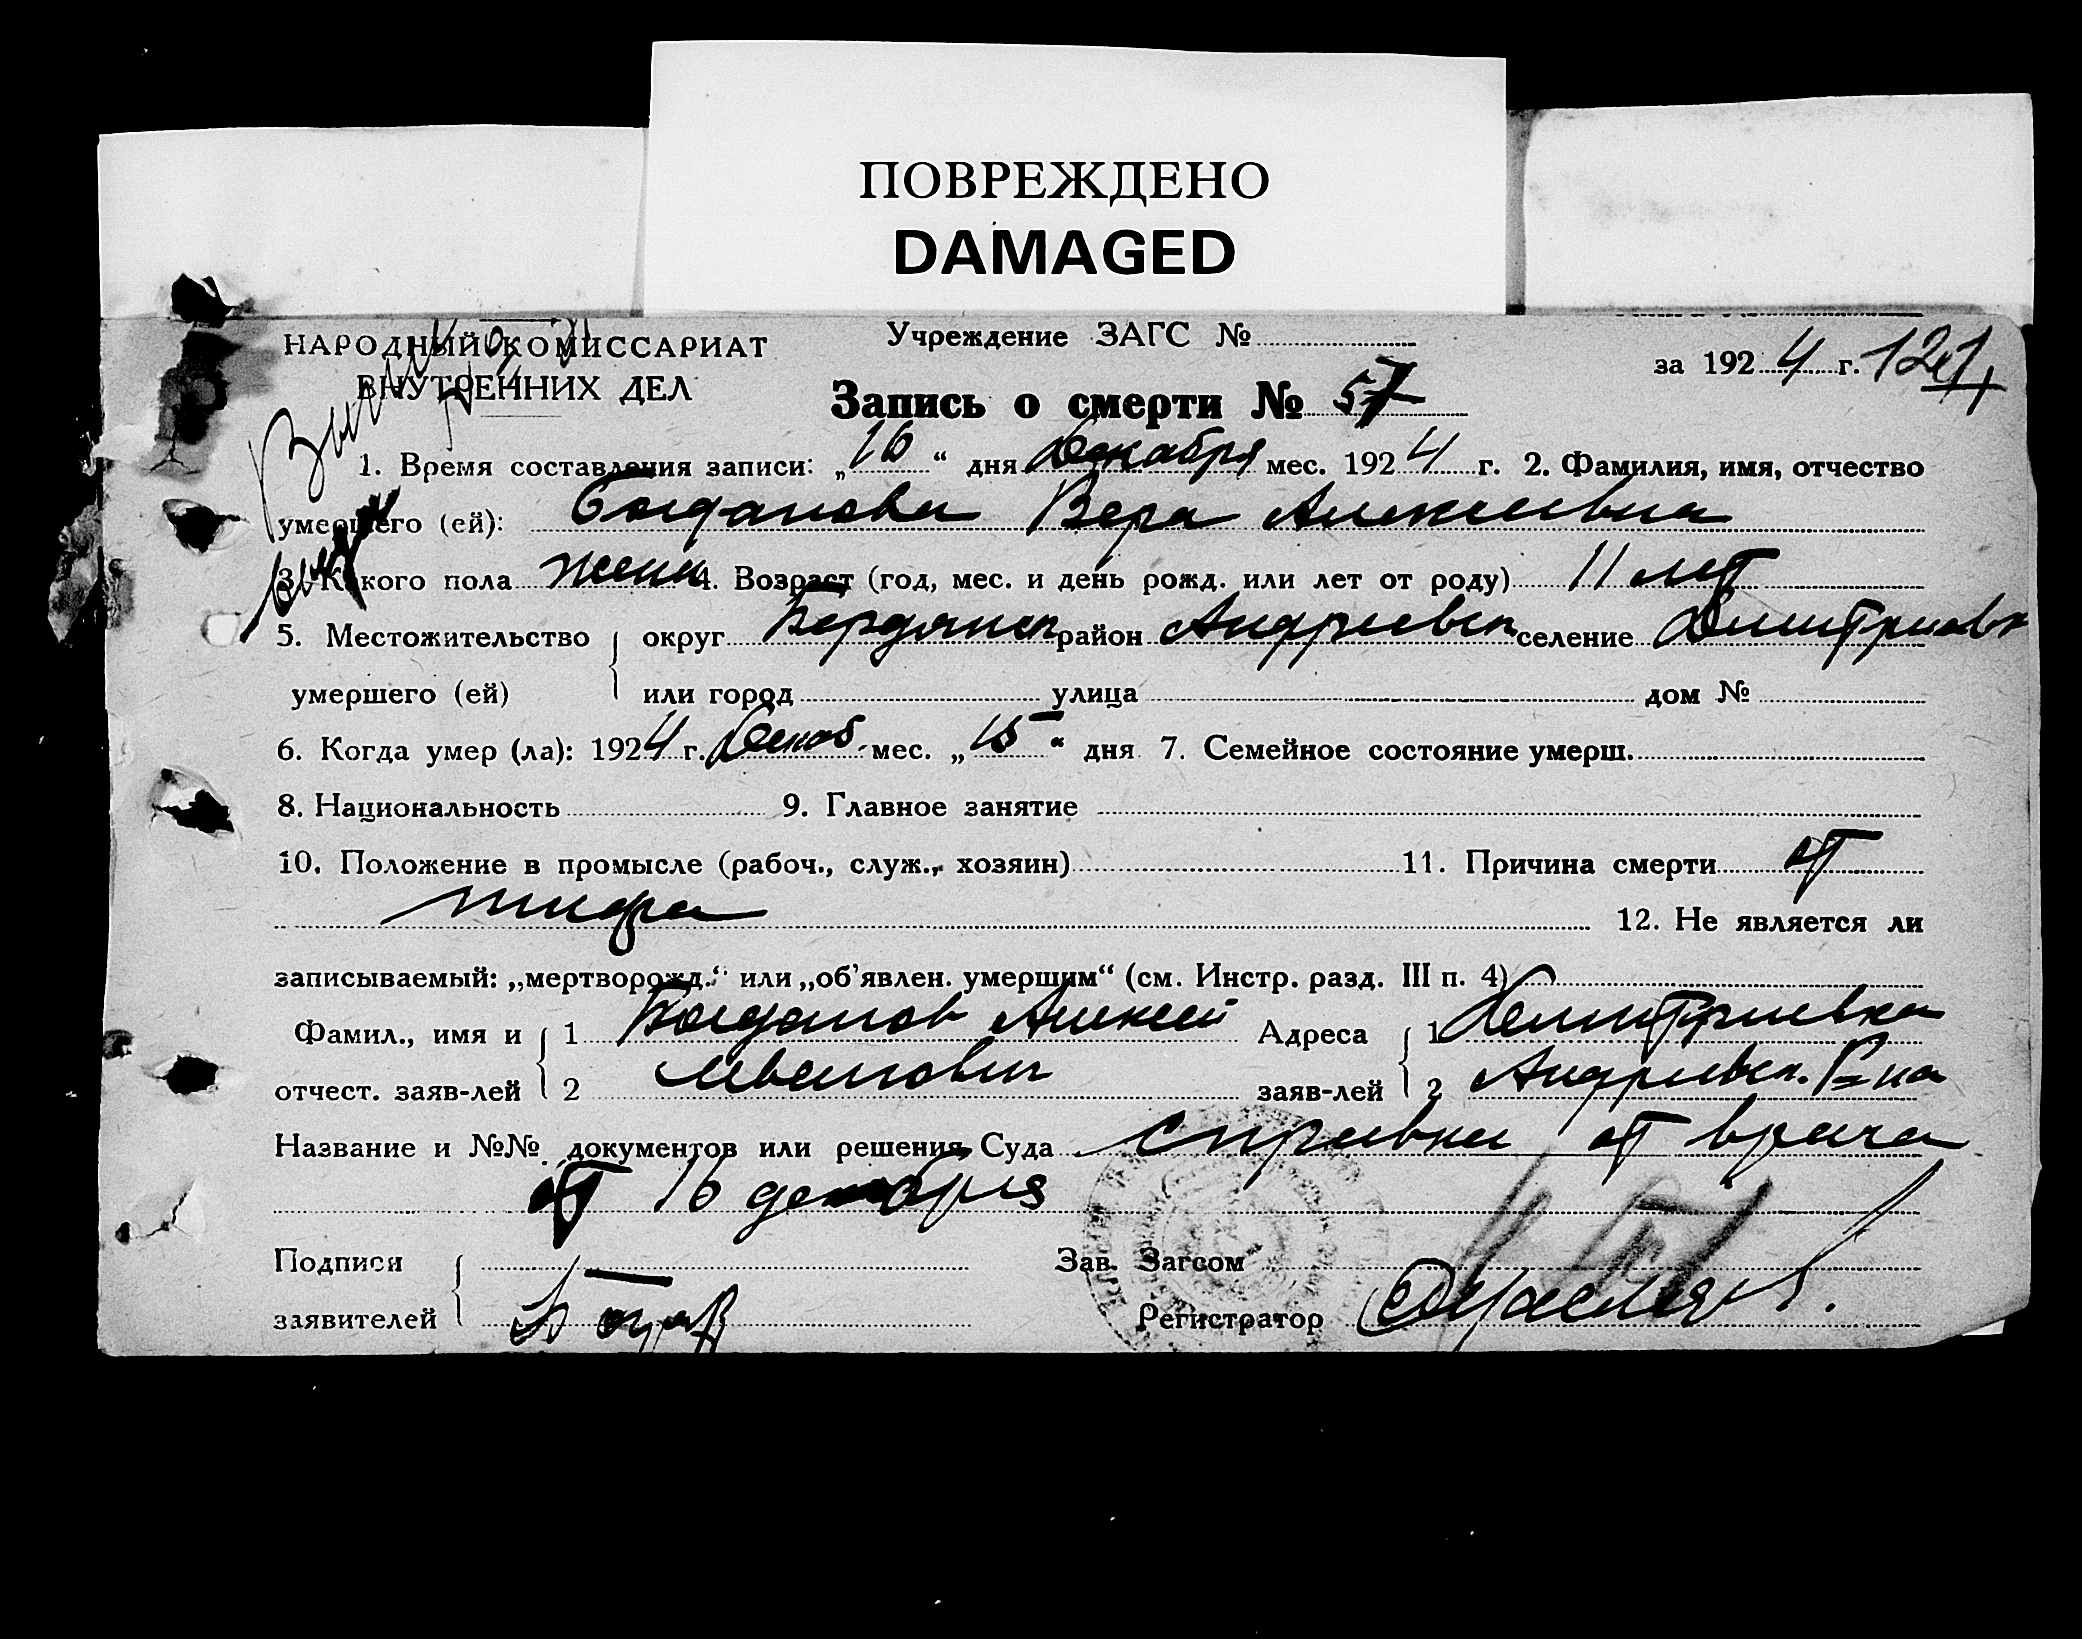 ПОВРЕЖДЕНО
DAMAGED
НАРОДНЫЙ КОМИССАРИАТ
ВНУТРЕННИХ ДЕЛ
Учреждение ЗАГС №
за 1924 г.
Запись о смерти № 57
1. Время составления записи: „16“ дня Декабря мес. 1924 г. 2. Фамилия, имя, отчество
умершего (ей): Богданова Вера Алексеевна
3. Какого пола женск 4. Возраст (год, мес. и день рожд. или лет от роду) 11 лет
5. Местожительство округ Бердянск район Андреевск селение Дмитриевк
умершего (ей) или город улица дом №
6. Когда умер (ла): 1924 г. Декаб. мес. „15“ дня 7. Семейное состояние умерш.
8. Национальность 9. Главное занятие
10. Положение в промысле (рабоч., служ., хозяин) 11. Причина смерти от
тифа 12. Не является ли
записываемый: „мертворожд.“ или „об'явлен. умершим“ (см. Инстр. разд. III п. 4)
Фамил., имя и 1 Богданов Алексей Адреса 1 Дмитриевка
отчест. заяв-лей 2 Иванович заяв-лей 2 Андреевск. Р-на
Название и №№ документов или решения Суда справка от врача
от 16 декабря
Подписи Зав. Загсом
заявителей Регистратор